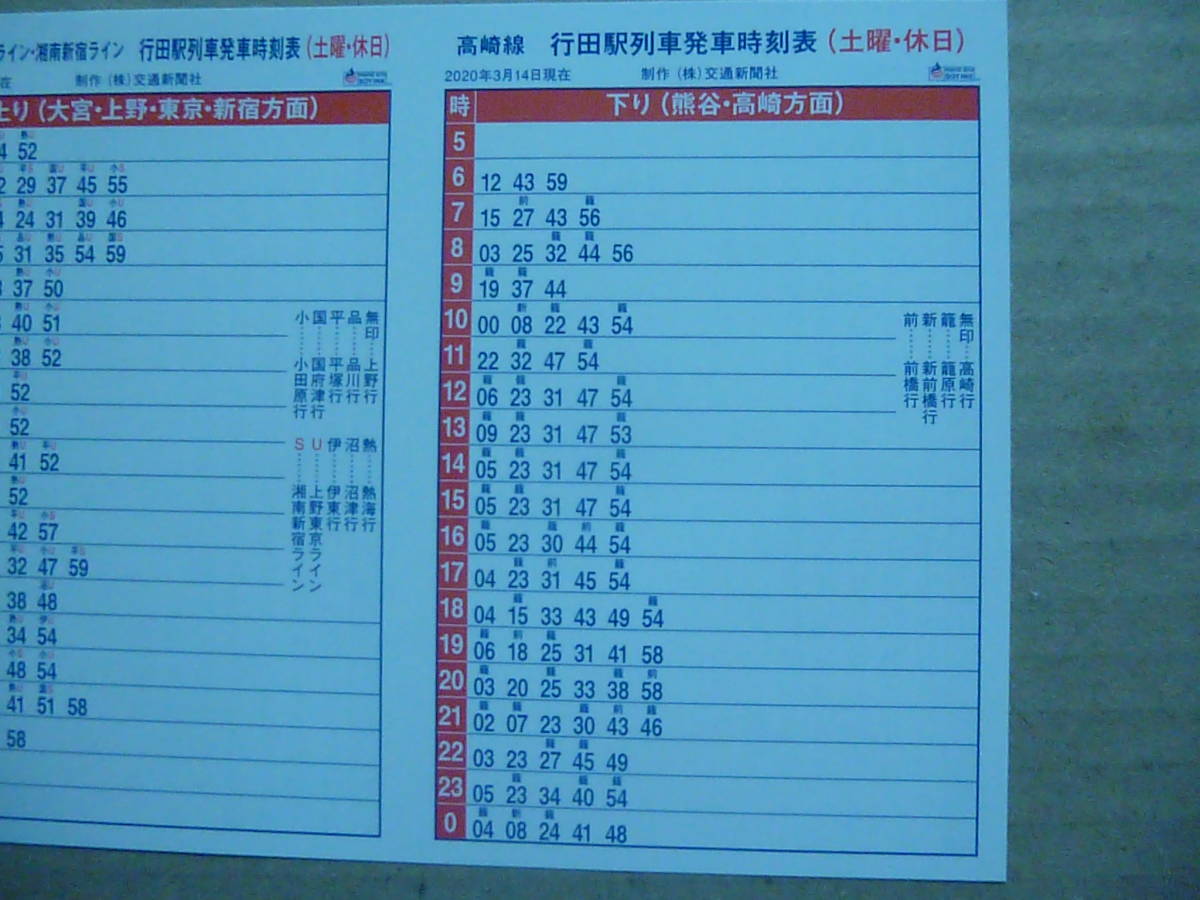 ライン・湘南新宿ライン 行田駅列車発車時刻表(土曜・休日)
在 制作(株)交通新聞社
上り(大宮・上野・東京・新宿方面)
52
29 37 45 55
24 31 39 46
31 35 54 59
37 50
40 51
38 52
52
52
41 52
52
42 57
32 47 59
38 48
34 54
48 54
41 51 58
58
無印……上野行
品……品川行
平……平塚行
国……国府津行
小……小田原行
熱……熱海行
沼……沼津行
伊……伊東行
U……上野東京ライン
S……湘南新宿ライン
高崎線 行田駅列車発車時刻表(土曜・休日)
2020年3月14日現在 制作(株)交通新聞社
時 下り(熊谷・高崎方面)
5
6 12 43 59
前 籠
7 15 27 43 56
籠 籠
8 03 25 32 44 56
籠 籠
9 19 37 44
新 籠 籠
10 00 08 22 43 54
籠 籠
11 22 32 47 54
籠 籠 籠
12 06 23 31 47 54
籠 籠 籠
13 09 23 31 47 53
籠 籠 籠
14 05 23 31 47 54
籠 籠 籠
15 05 23 31 47 54
籠 籠 前 籠
16 05 23 30 44 54
籠 前 籠
17 04 23 31 45 54
籠 籠
18 04 15 33 43 49 54
籠 前 籠
19 06 18 25 31 41 58
籠 籠 籠 前
20 03 20 25 33 38 58
籠 籠 籠 前 籠
21 02 07 23 30 43 46
籠 籠
22 03 23 27 45 49
籠 籠 籠
23 05 23 34 40 54
籠 新 籠
0 04 08 24 41 48
無印……高崎行
籠……籠原行
新……新前橋行
前……前橋行